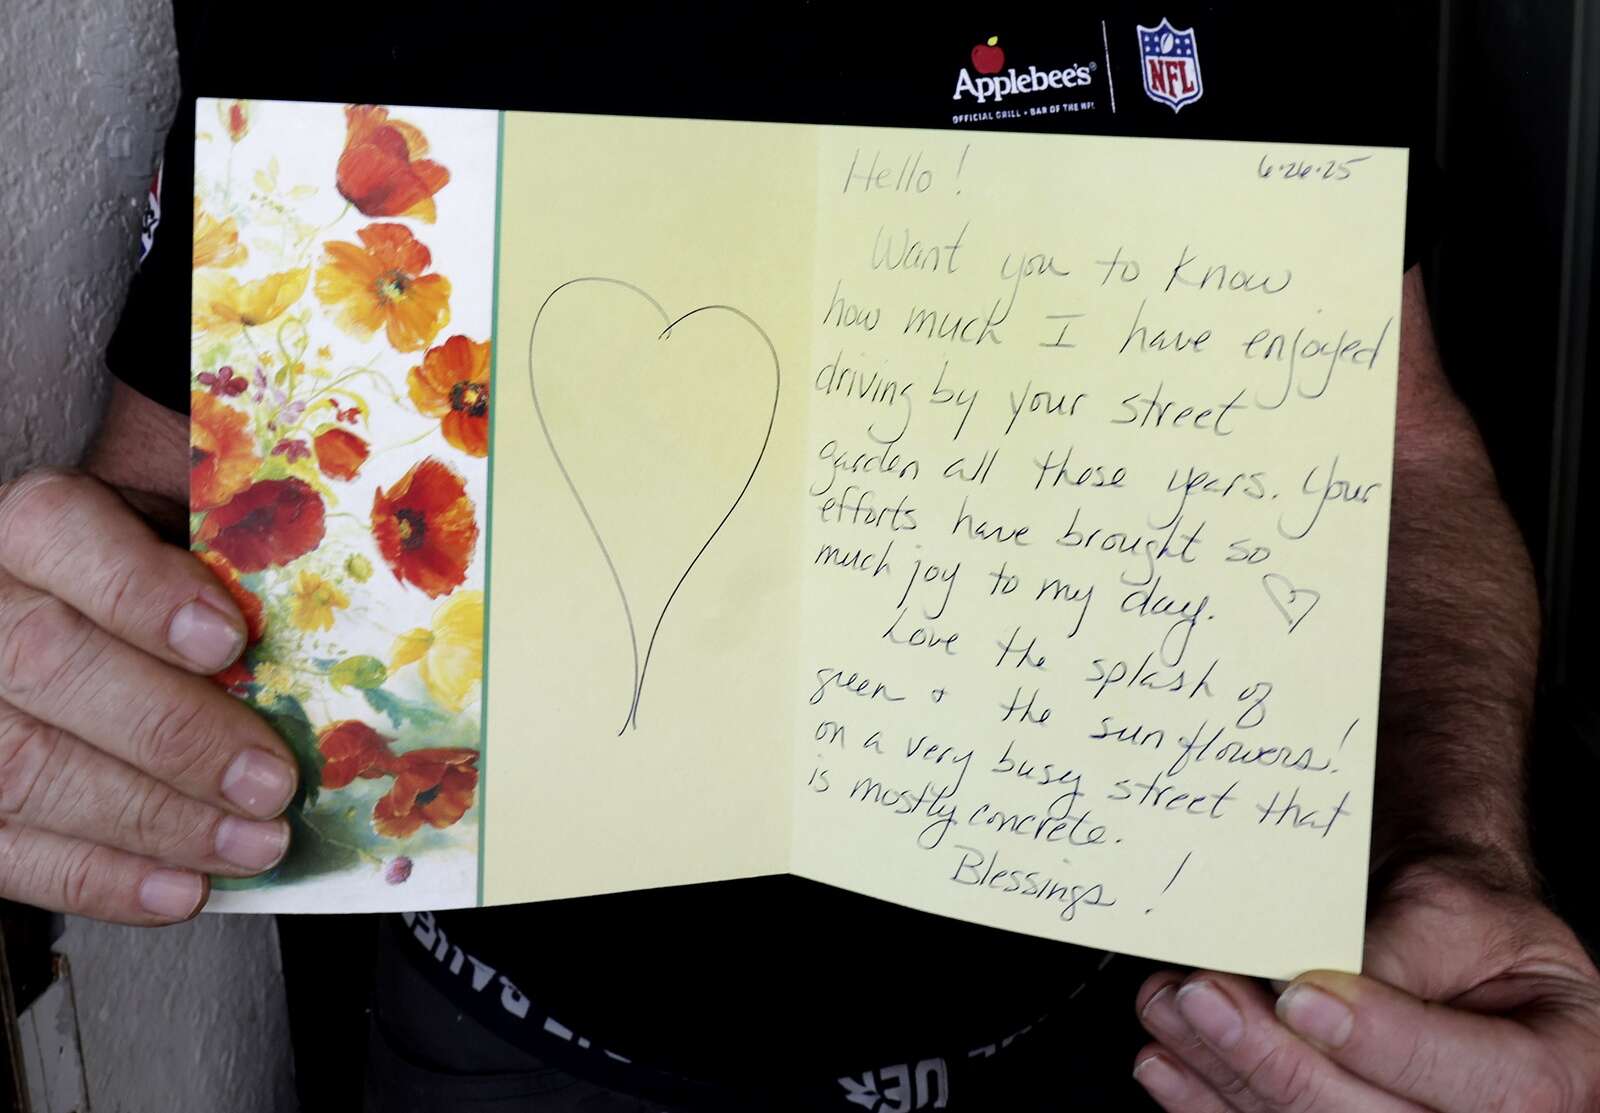 Applebee's®
OFFICIAL GRILL + BAR OF THE NFL
NFL
6·26·25
Hello!
Want you to know
how much I have enjoyed
driving by your street
garden all these years. Your
efforts have brought so
much joy to my day. ♡
Love the splash of
green + the sunflowers!
on a very busy street that
is mostly concrete.
Blessings!